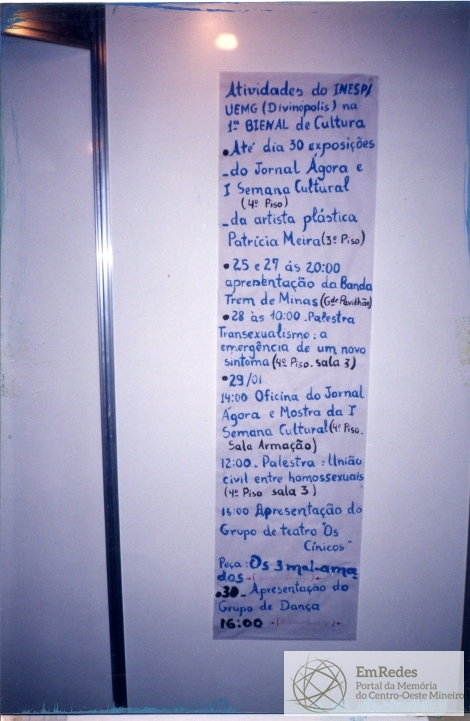 Atividades do INESP/
UEMG (Divinópolis) na
1ª BIENAL de Cultura
•Até dia 30 exposições
-do Jornal Ágora e
I Semana Cultural
(4º Piso)
-da artista plástica
Patrícia Meira (3º Piso)
•25 e 27 ás 20:00
apresentação da Banda
Trem de Minas (Gde Pavilhão)
•28 às 10:00. Palestra
Transexualismo: a
emergência de um novo
sintoma (4º Piso. sala 3)
•29/01
14:00 Oficina do Jornal
Ágora e Mostra da I
Semana Cultural (4º Piso.
Sala Armação)
12:00. Palestra: União
civil entre homossexuais
(4º Piso sala 3)
16:00 Apresentação do
Grupo de teatro "Os
Cínicos"
Peça: Os 3 mal-ama
dos
•30- Apresentação do
Grupo de Dança
16:00
EmRedes
Portal da Memória
do Centro-Oeste Mineiro